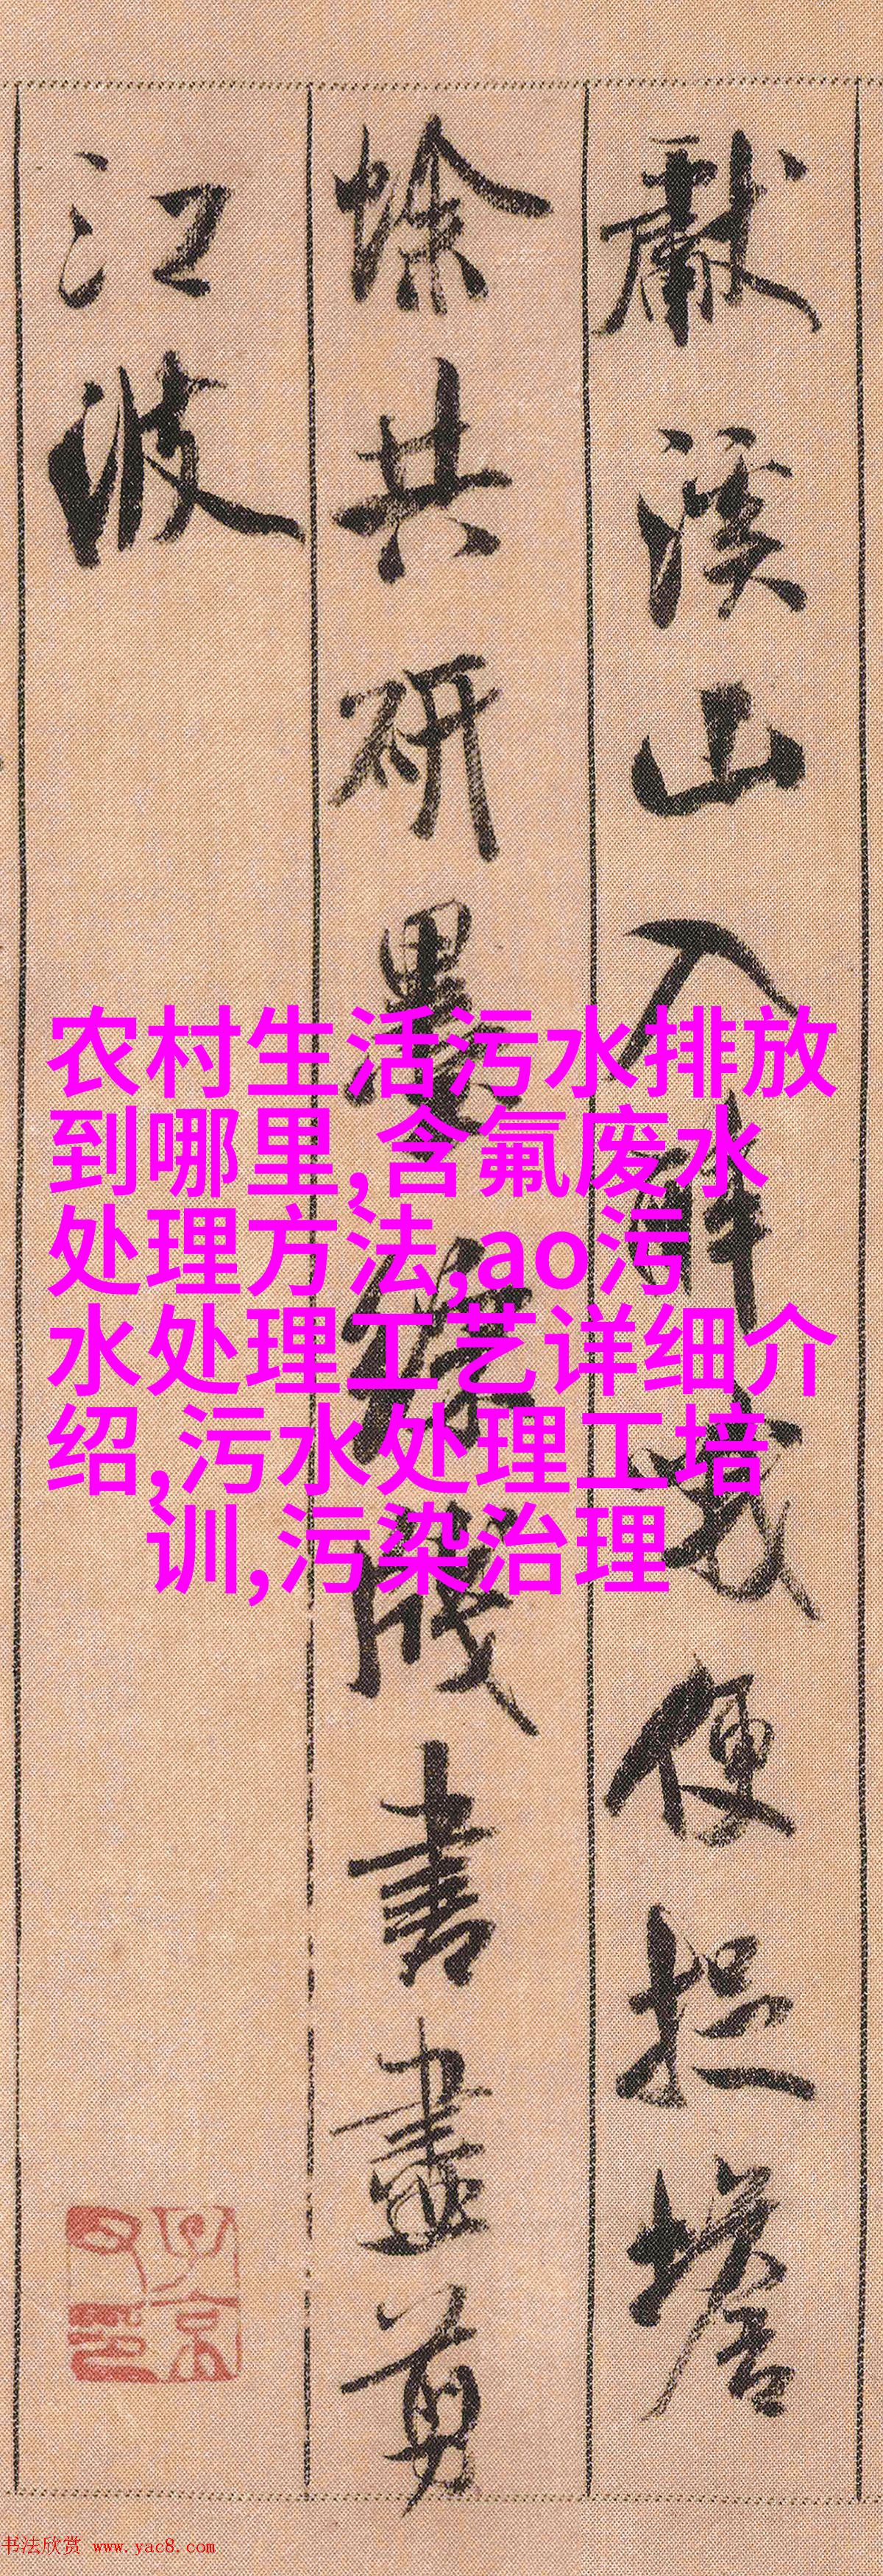 獻溪山入醉哦便捉蟾
蜍共研墨綵牋書盡剪
江波
农村生活污水排放
到哪里,含氟废水
处理方法,ao污
水处理工艺详细介
绍,污水处理工培
训,污染治理
书法欣赏 www.yac8.com